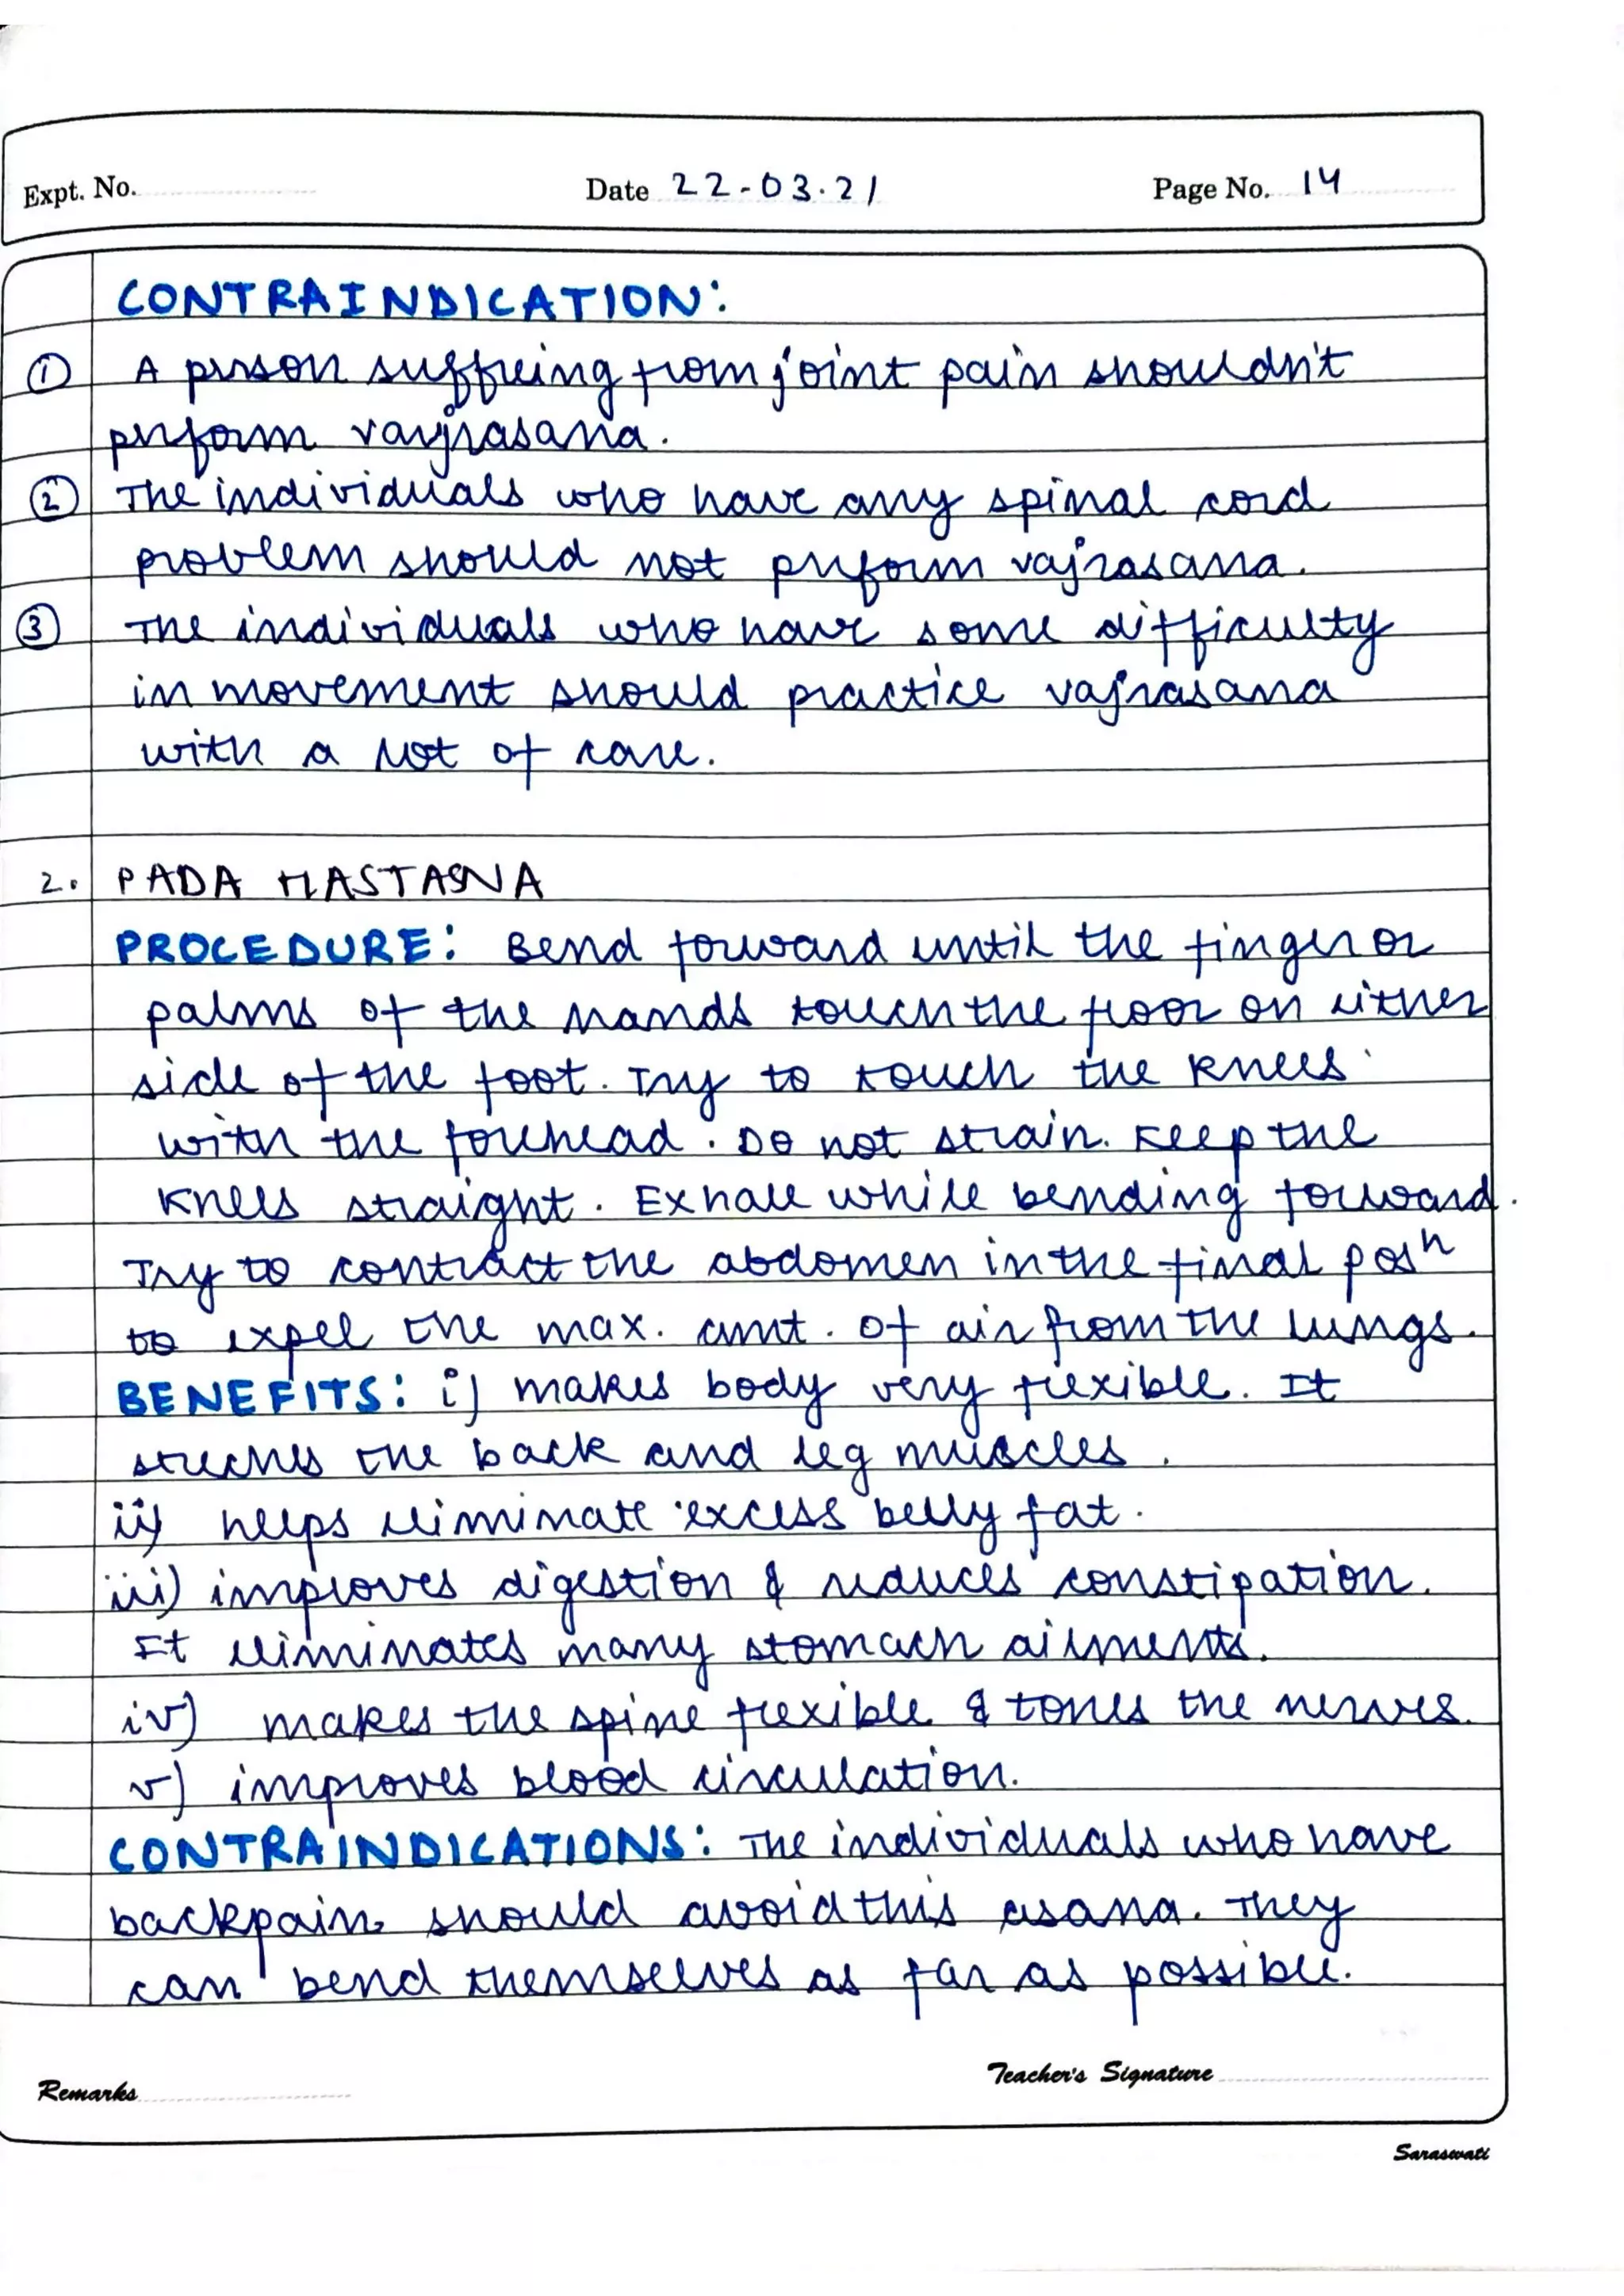 Expt. No. Date 22-03-21 Page No. 14
CONTRAINDICATION:
① A person suffreing from joint pain shouldn't
perform varjrasana.
② The individuals who have any spinal cord
problem should not perform vajrasana.
③ The individuals who have some difficulty
in movement should practice vajrasana
with a lot of care.
2. PADA HASTASNA
PROCEDURE: Bend forward until the finger or
palms of the hands touch the floor on either
side of the foot. Try to touch the knees
with the forehead. Do not strain. Keep the
knees straight. Exhale while bending forward.
Try to contract the abdomen in the final posn
to expel the max. amt. of air from the lungs.
BENEFITS: i) makes body very flexible. It
streches the back and leg muscles.
ii) helps eliminate excess belly fat.
iii) improves digestion & reduces constipation.
It eliminates many stomach ailments.
iv) makes the spine flexible & tones the nerves.
v) improves blood circulation.
CONTRAINDICATIONS: The individuals who have
backpain should avoid this asana. They
can bend themselves as far as possible.
Remarks Teacher's Signature
Saraswati